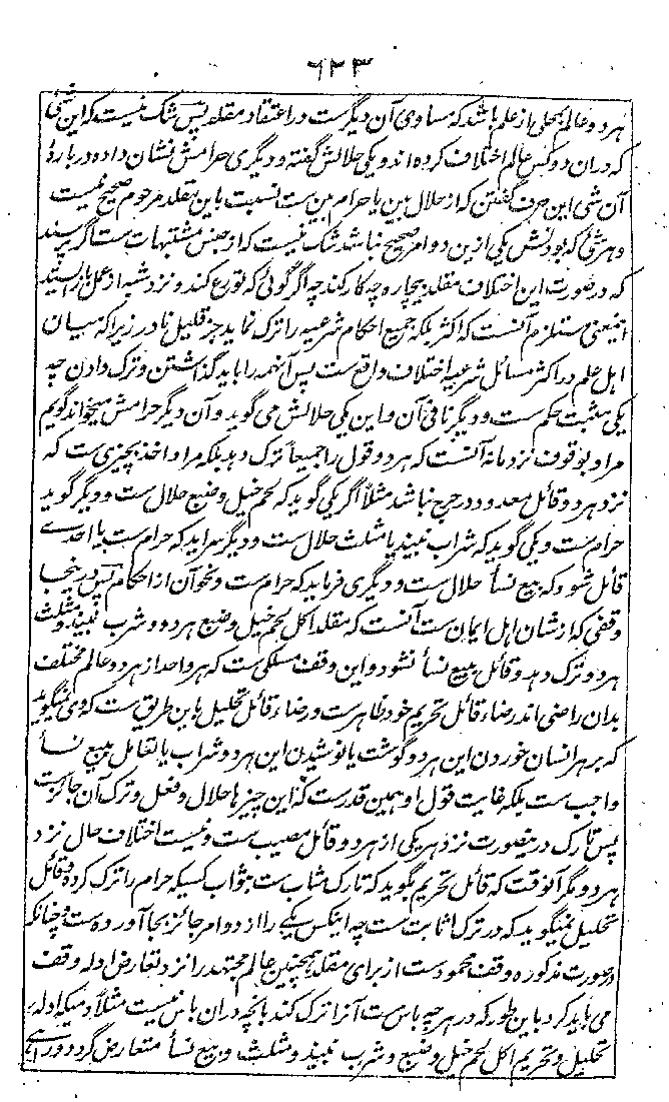 ٦٢٣
هر دو عالم بمحلی از علم باشد که مساوی آن دیگرست در اعتقاد مقلد پس شک نیست که این شی
که دران دو کس عالم اختلاف کرده اند و یکی حلالش گفته و دیگری حرامش نشان داده در بارهٔ
آن شی این حرف گفتن که از حلال بین یا حرام بین ست نسبت باین مقلد مرحوم صحیح نیست
و هر شی که بودنش یکی ازین دو امر صحیح نباشد شک نیست که از جنس مشتبهات ست اگر پرسند
که درصورت این اختلاف مقلد بیچاره چه کار کند چه اگر گوئی که تورع کند و نزد شبه از عمل باز ایستد
اینمعنی مستلزم آنست که اکثر بلکه جمیع احکام شرعیه را ترک نماید جز قلیل نادر زیرا که میان
اهل علم در اکثر مسائل شرعیه اختلاف واقع ست پس آنهمه را باید گذاشتن و ترک دادن چه
یکی مثبت حکم ست و دیگر نافی آن و این یکی حلالش می گوید و آن دیگر حرامش میخواند گویم
مراد بوقوف نزد ما نه آنست که هر دو قول را جمیعاً ترک دهد بلکه مراد اخذ بچیزی ست که
نزد هر دو قائل معدود در حرج نباشد مثلاً اگر یکی گوید که لحم خیل و ضبع حلال ست و دیگر گوید
حرام ست و یکی گوید که شراب نبیذ یا مثلث حلال ست و دیگر سراید که حرام ست یا احدے
قائل شود که بیع نسأ حلال ست و دیگری فرماید که حرام ست و نحو آن از احکام پس درینجا
وقفی که از شان اهل ایمان ست آنست که مقلد اکل لحم خیل و ضبع هر دو و شرب نبیذ و مثلث
هر دو ترک دهد و قائل ببیع نسأ نشود و این وقف مسلکی ست که هر واحد از هر دو عالم مختلف
بدان راضی اند رضاء قائل تحریم خود ظاهرست و رضاء قائل تحلیل باین طریق ست که وی نمیگوید
که بر هر انسان خوردن این هر دو گوشت یا نوشیدن این هر دو شراب یا تعامل ببیع نسأ
واجب ست بلکه غایت قول او همین قدرست که این چیزها حلال و فعل و ترک آن جائزست
پس تارک درینصورت نزد هر یکی از هر دو قائل مصیب ست و نیست اختلاف حال نزد
هر دو مگر آنوقت که قائل تحریم بگوید که تارک مثاب ست بثواب کسیکه حرام را ترک کرده و قائل
تحلیل نمیگوید که در ترک اثابت ست چه اینکس یکے را از دو امر جائز بجا آورده ست و چنانکه
درصورت مذکوره وقف محمودست از برای مقلد همچنین عالم مجتهد را نزد تعارض ادله وقف
می باید کرد باین طور که در هر چه باس ست آنرا ترک کند بانچه دران باس نیست مثلاً دمیکه ادله
تحلیل و تحریم اکل لحم خیل و ضبع و شرب نبیذ و مثلث و بیع نسأ متعارض گردد و رای